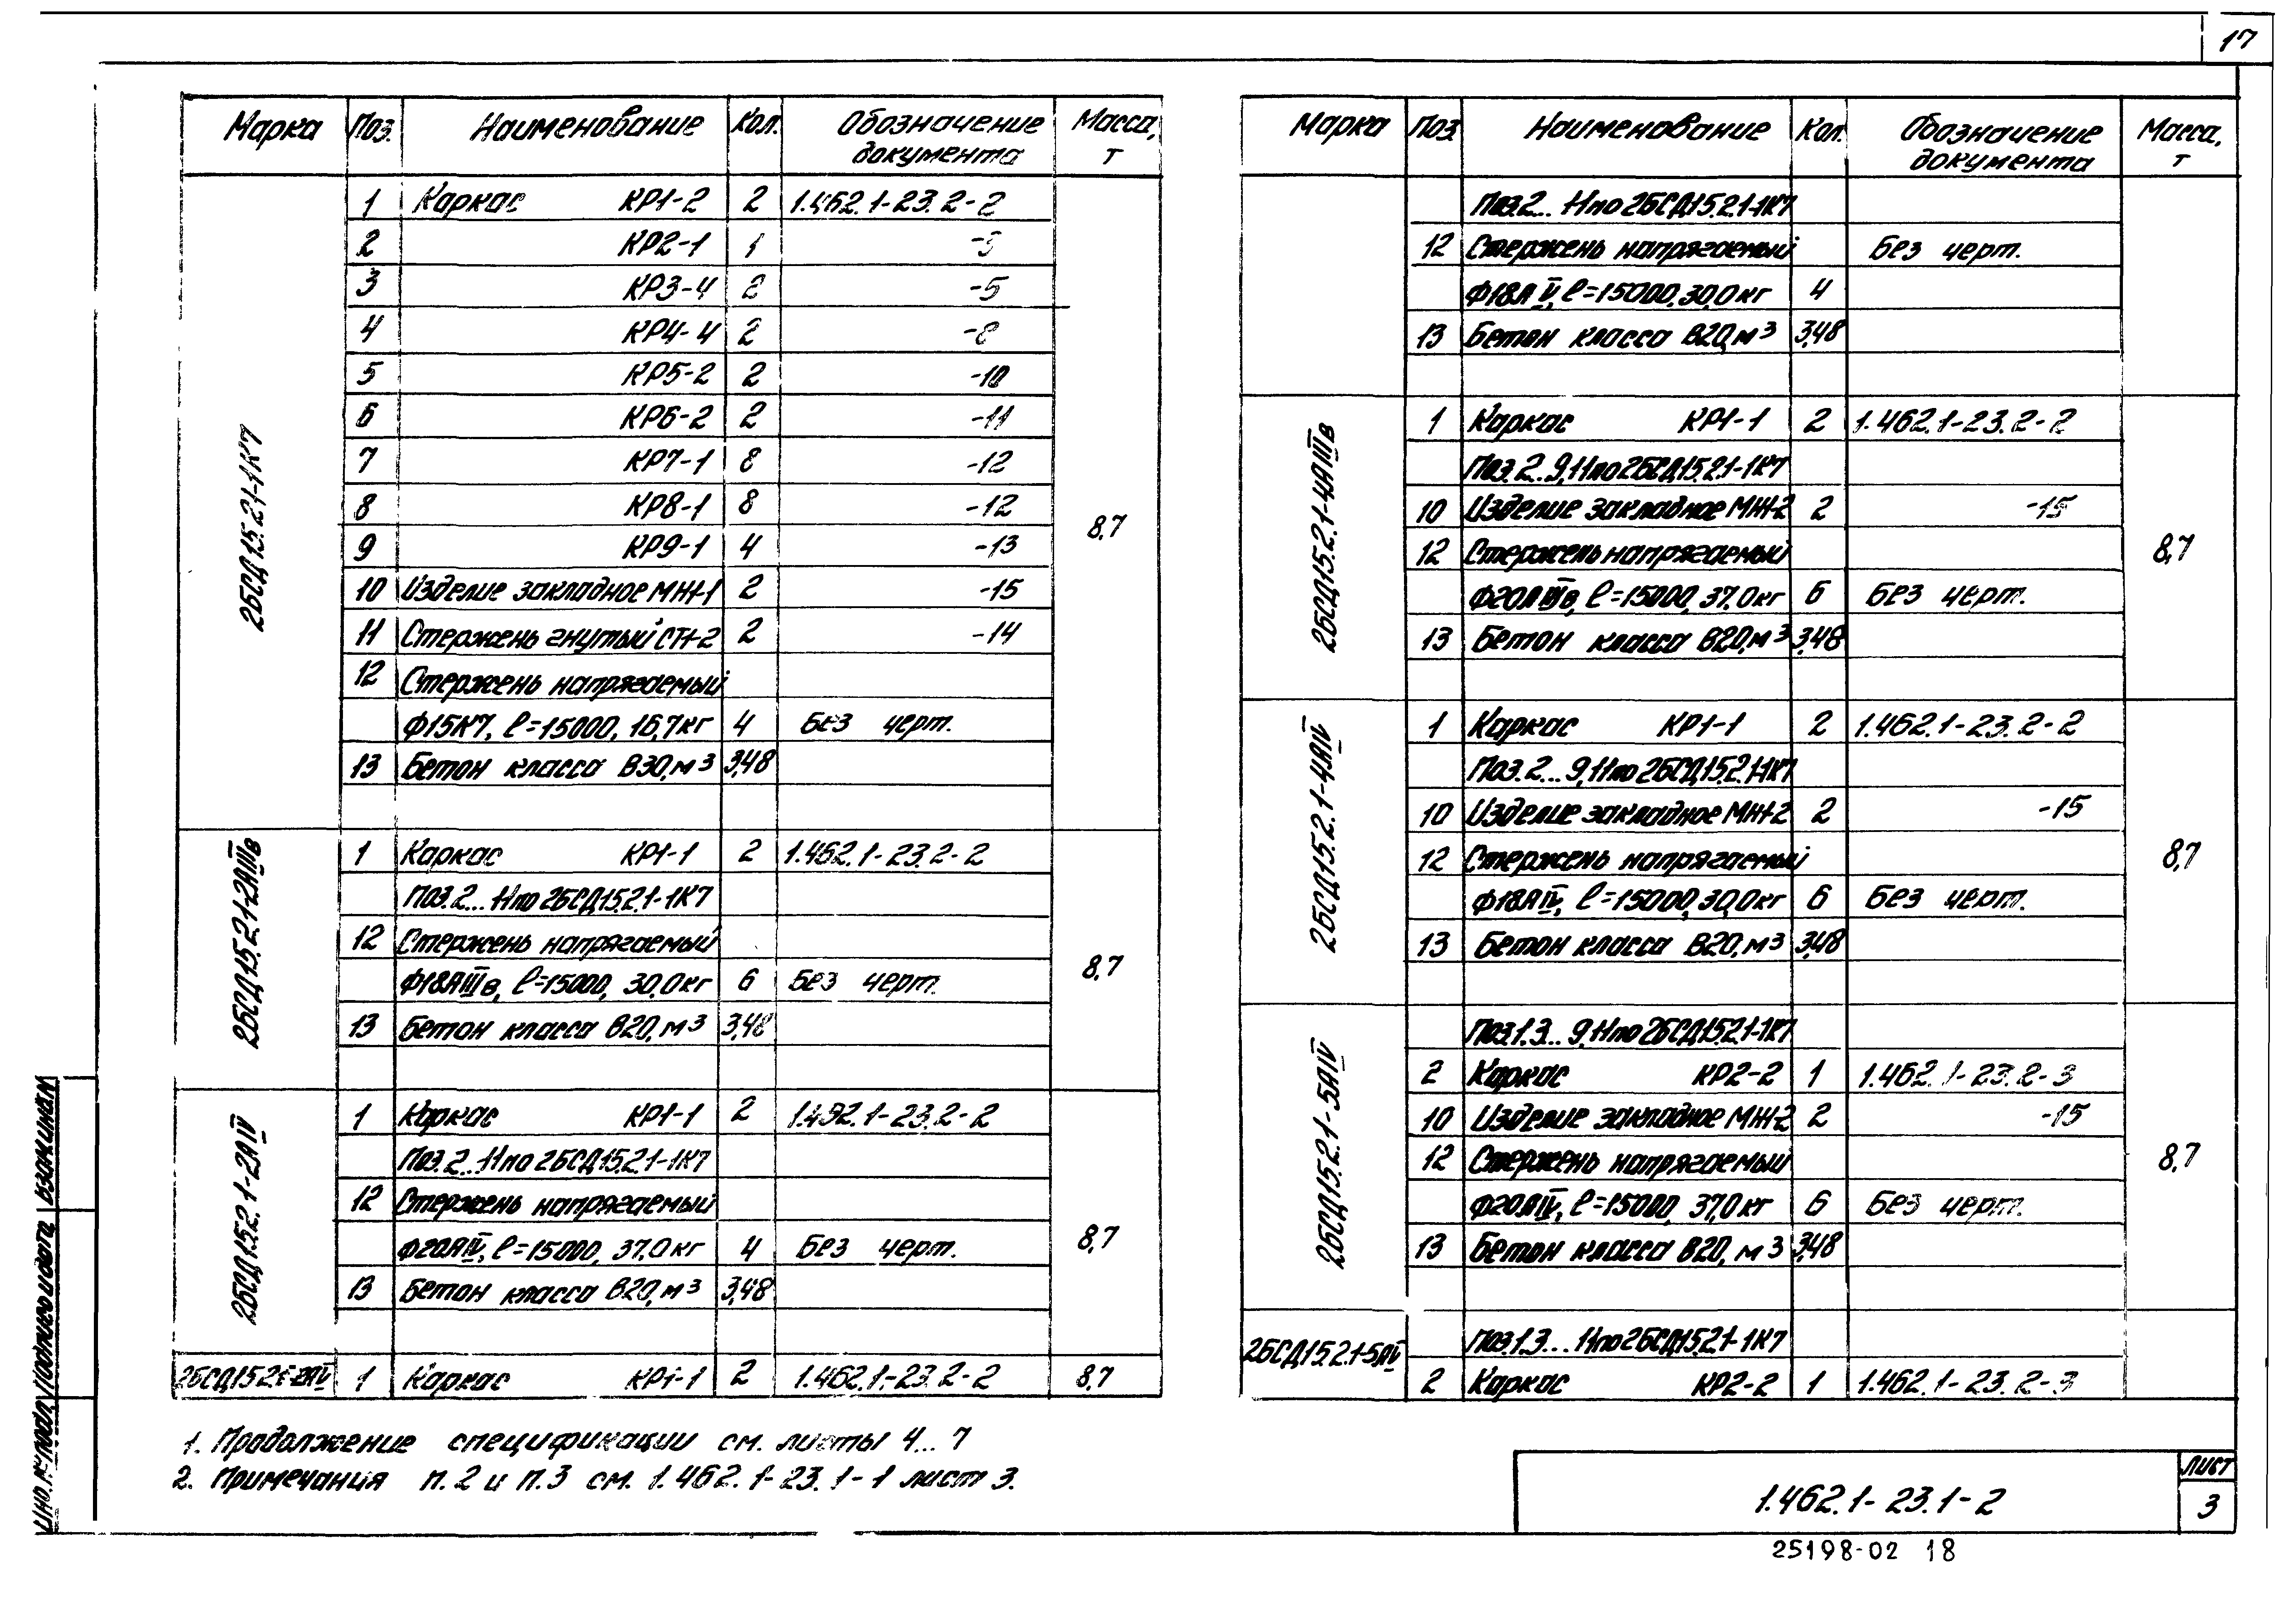 17
Марка Поз. Наименование Кол. Обозначение документа Масса, т
2БСД15.2.1-1К7
1 Каркас КР1-2 2 1.462.1-23.2-2
2 КР2-1 1 -3
3 КР3-4 2 -5
4 КР4-4 2 -8
5 КР5-2 2 -10
6 КР6-2 2 -11
7 КР7-1 8 -12
8 КР8-1 8 -12
9 КР9-1 4 -13
10 Изделие закладное МН-1 2 -15
11 Стержень гнутый СТ-2 2 -14
12 Стержень напрягаемый
Ф15К7, ℓ=15000, 16,7кг 4 Без черт.
13 Бетон класса В30, м³ 3,48
8,7
2БСД15.2.1-2АIIIв
1 Каркас КР1-1 2 1.462.1-23.2-2
Поз.2...11 по 2БСД15.2.1-1К7
12 Стержень напрягаемый
Ф18АIIIв, ℓ=15000, 30,0кг 6 Без черт.
13 Бетон класса В20, м³ 3,48
8,7
2БСД15.2.1-2АIV
1 Каркас КР1-1 2 1.492.1-23.2-2
Поз.2...11 по 2БСД15.2.1-1К7
12 Стержень напрягаемый
Ф20АIV, ℓ=15000, 37,0кг 4 Без черт.
13 Бетон класса В20, м³ 3,48
8,7
2БСД15.2.1-2АV 1 Каркас КР1-1 2 1.462.1-23.2-2 8,7
Марка Поз Наименование Кол. Обозначение документа Масса, т
Поз.2...11 по 2БСД15.2.1-1К7
12 Стержень напрягаемый Без черт.
Ф18АV, ℓ=15000, 30,0кг 4
13 Бетон класса В20, м³ 3,48
2БСД15.2.1-4АIIIв
1 Каркас КР1-1 2 1.462.1-23.2-2
Поз.2...9,11 по 2БСД15.2.1-1К7
10 Изделие закладное МН-2 2 -15
12 Стержень напрягаемый
Ф20АIIIв, ℓ=15000, 37,0кг 6 Без черт.
13 Бетон класса В20, м³ 3,48
8,7
2БСД15.2.1-4АIV
1 Каркас КР1-1 2 1.462.1-23.2-2
Поз.2...9,11 по 2БСД15.2.1-1К7
10 Изделие закладное МН-2 2 -15
12 Стержень напрягаемый
Ф18АIV, ℓ=15000, 30,0кг 6 Без черт.
13 Бетон класса В20, м³ 3,48
8,7
2БСД15.2.1-5АIV
Поз.1.3...9,11 по 2БСД15.2.1-1К7
2 Каркас КР2-2 1 1.462.1-23.2-3
10 Изделие закладное МН-2 2 -15
12 Стержень напрягаемый
Ф20АIV, ℓ=15000, 37,0кг 6 Без черт.
13 Бетон класса В20, м³ 3,48
8,7
2БСД15.2.1-5АV
Поз.1.3...11 по 2БСД15.2.1-1К7
2 Каркас КР2-2 1 1.462.1-23.2-3
1. Продолжение спецификации см. листы 4...7
2. Примечания п.2 и п.3 см. 1.462.1-23.1-1 лист 3.
1.462.1-23.1-2
Лист
3
25198-02 18
Инв.№подл. Подпись и дата Взам.инв.№